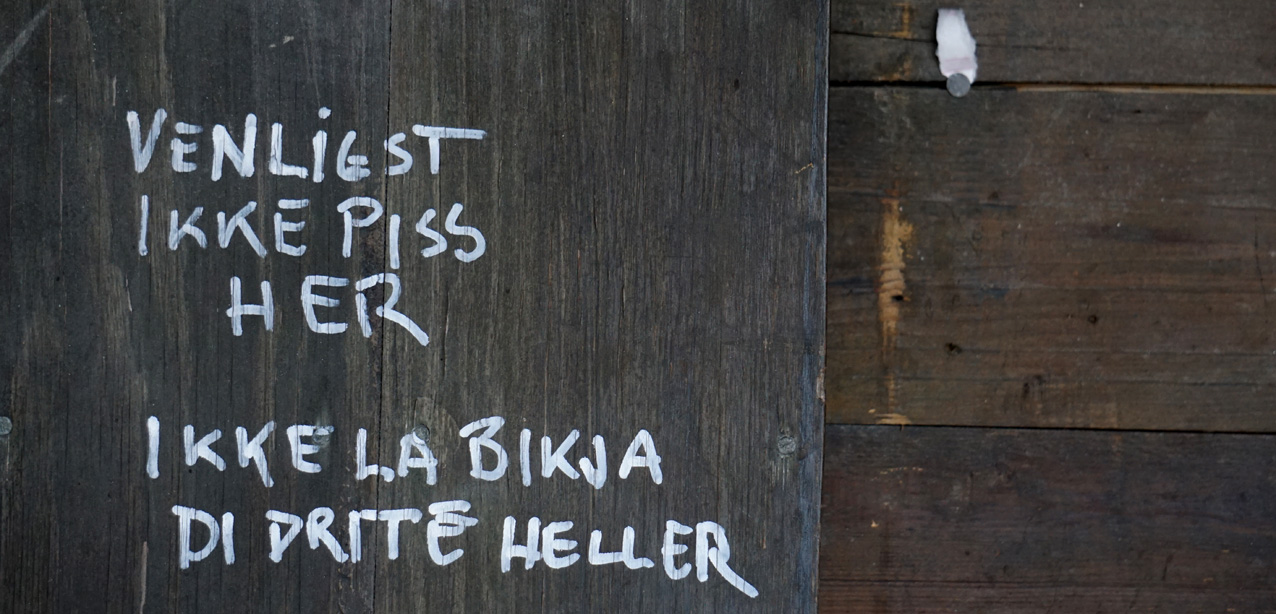 VENLIGST
IKKE PISS
HER
IKKE LA BIKJA
DI DRITE HELLER